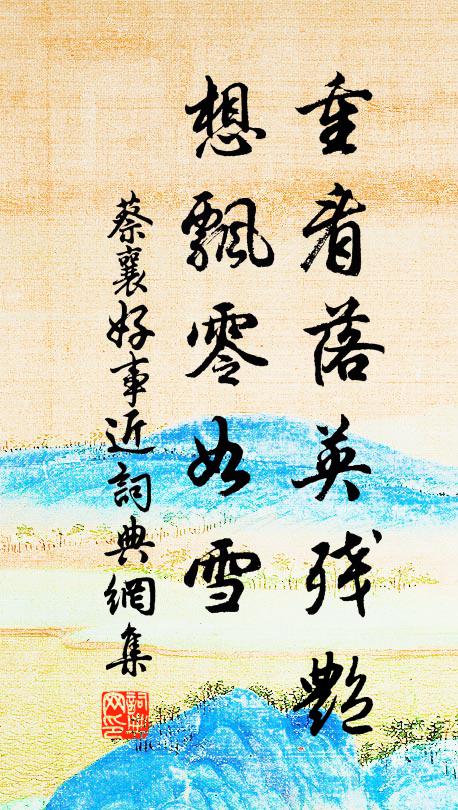 重看落英殘艷
想飄零如雪
蔡襄好事近詞典網集